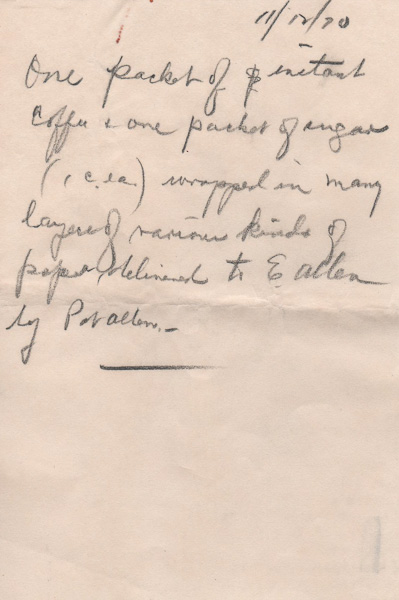 11/12/70
One packet of instant
Coffee & one packet of sugar
(1 c. ea.) wrapped in many
layers of various kinds of
paper delivered to E Allen
by Pat Allen.-